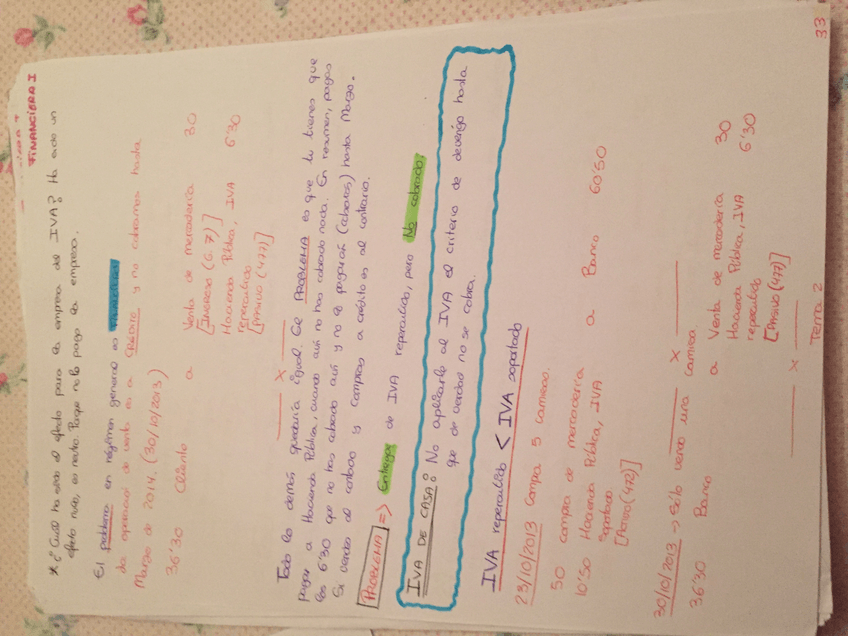 TEMA 2
FINANCIERA I
* ¿Cuál ha sido el efecto para la empresa del IVA? Ha sido un
efecto nulo, es neutro. Porque no lo paga la empresa.
El problema en régimen general es FINANCIERO
la operación de venta es a CRÉDITO y no cobramos hasta
Marzo de 2014. (30/10/2013)
36'30 Cliente a Venta de mercadería 30
[INGRESO (G.7)]
Hacienda Pública, IVA 6'30
repercutido
[PASIVO (477)]
x
Todo lo demás quedaría igual. El PROBLEMA es que tu tienes que
pagar a Hacienda Pública, cuando aún no has cobrado nada. En resumen, pagas
los 6'30 que no has cobrado aún y no te pagarán (cobrarás) hasta Marzo.
Si vendes al contado y compras a crédito es al contrario.
PROBLEMA => Entregar de IVA repercutido, pero No cobrado.
IVA DE CASA: No aplicarle al IVA el criterio de devengo hasta
que de verdad no se cobra.
IVA repercutido < IVA soportado
23/10/2013 Compra 5 camisas.
50 compra de mercadería
10'50 Hacienda Pública, IVA a Banco 60'50
Soportado
[ACTIVO (472)]
x
30/10/2013 -> Sólo vendo una camisa
36'30 Banco a Venta de mercadería 30
Hacienda Pública, IVA 6'30
repercutido
[PASIVO (477)]
x
Tema 2
33